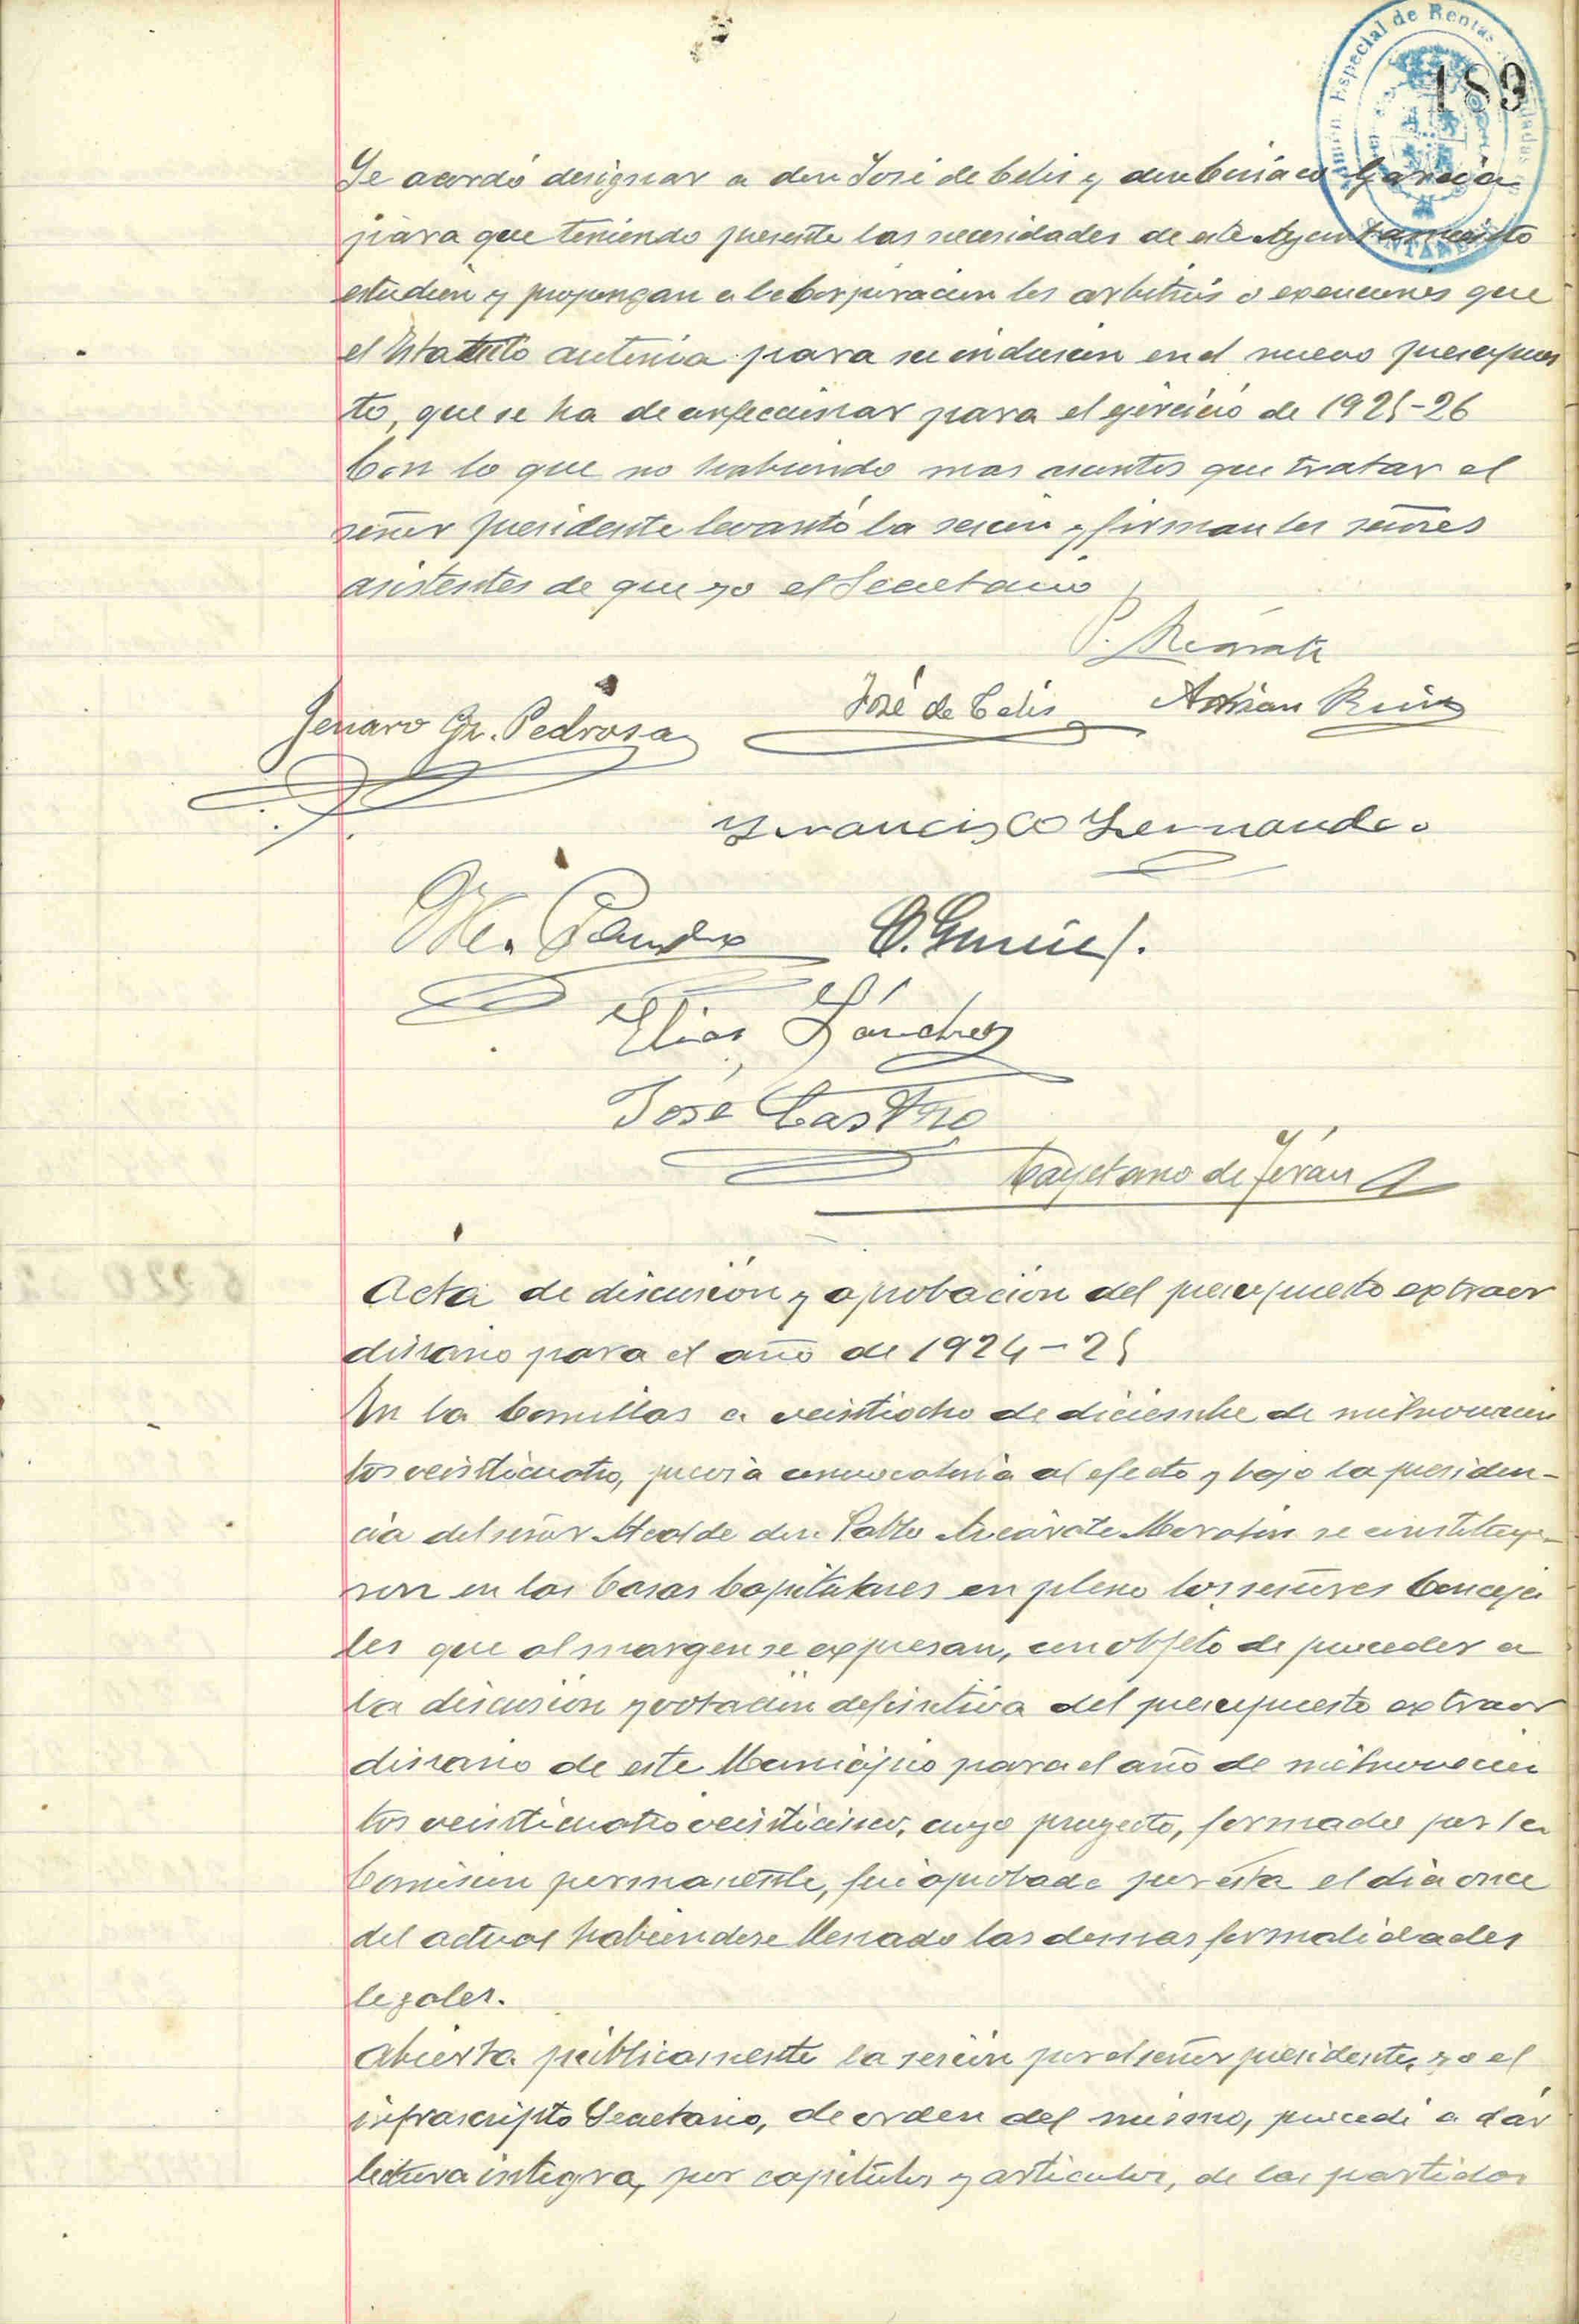 189
Se acordó designar a don José de Celis y don Ciriaco García
para que teniendo presente las necesidades de este Ayuntamiento
estudien y propongan a la Corporación los arbitrios o exenciones que
el Estatuto autoriza para su inclusion en el nuevo presupues
to, que se ha de confeccionar para el ejercicio de 1925-26
Con lo que no habiendo mas asuntos que tratar el
señor presidente levantó la sesion y firman los señores
asistentes de que yo el Secretario
José de Celis Adrian Ruiz
Genaro Gz. Pedrosa
Francisco Fernandez
C. Garcia
Elias Sánchez
José Castro
Cayetano de Terán
Acta de discusión y aprobación del presupuesto extraor
dinario para el año de 1924-25
En la Comillas a veintiocho de diciembre de mil novecien
tos veinticuatro, previa convocatoria al efecto y bajo la presiden-
cia del señor Alcalde don Pablo se constituye-
ron en las Casas Capitulares en pleno los señores Conceja
les que al margen se expresan, con objeto de proceder a
la discusion y votacion definitiva del presupuesto extraor
dinario de este Municipio para el año de mil novecien
tos veinticuatro veinticinco, cuyo proyecto, formado por la
Comision permanente, fué aprobado por ésta el dia once
del actual habiendose llenado las demas formalidades
legales.
Abierta públicamente la sesión por el señor presidente, yo el
infrascripto Secretario, de orden del mismo, procedi a dar
lectura integra, por capitulos y articulos, de las partidas